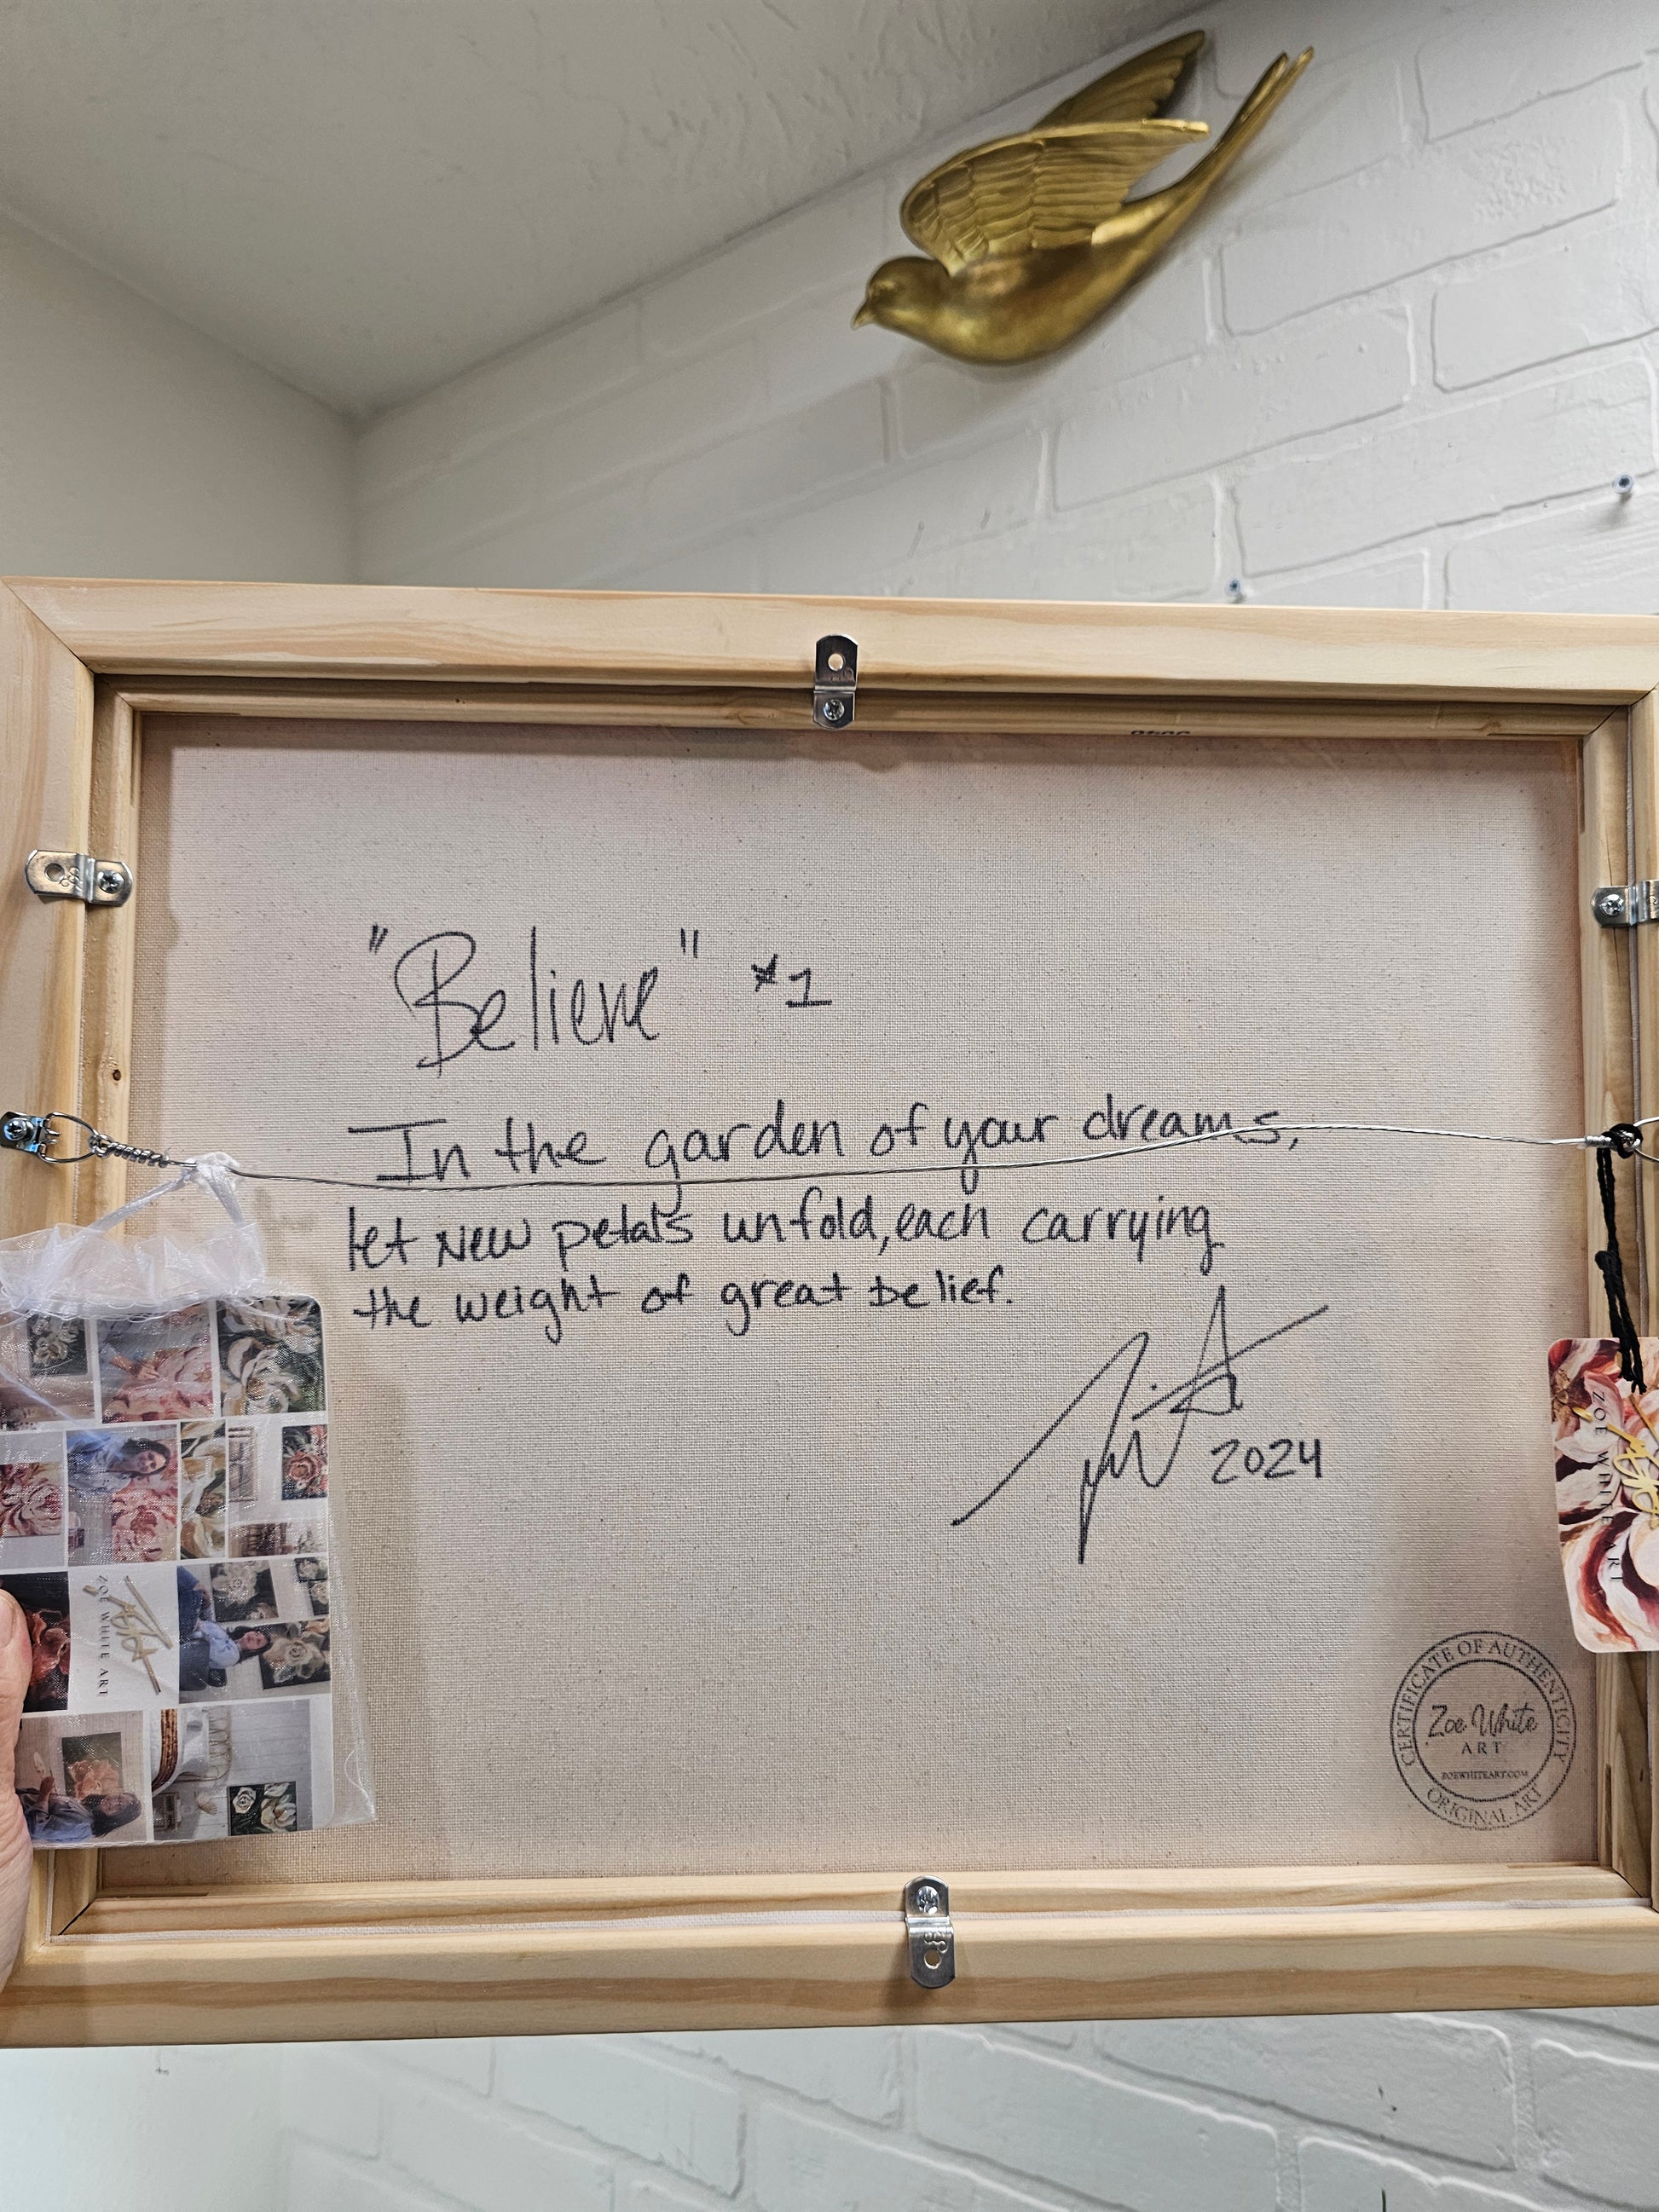 "Believe" #1
In the garden of your dreams,
let New petals unfold, each carrying
the weight of great belief.
2024
ZOE WHITE ART
ZOE WHITE ART
CERTIFICATE OF AUTHENTICITY
Zoe White
ART
ZOEWHITEART.COM
ORIGINAL ART